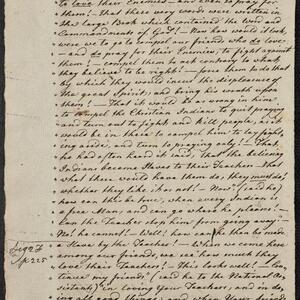 to love their Enemies — and even to pray for
them! — That these very words were written in
the large Book which contained the Word and
Commandments of God! — Now how would it look,
were we to go & compel our friend who do love —
— and do pray for their Enemies, to fight against
them! — compel them to act contrary to what
they believed to be right! — force them to do that
by which they would incur the displeasure of
the great Spirit; and bring his wrath upon
them! — That it would be as wrong in him
to compel the Christian Indians to quit praying
and turn out to fight and kill people, as it
would be in them to compel him to lay fight,
ing aside, and turn to praying only! — That,
he had often heard it said, that the believing
Indians became Slaves to their Teachers — that
what these would have them do, they must do!
whether they like it or not! — Now (said he)
how can this be true, when every Indian is
a free Man; and can go where he pleases! —
can the Teacher stop him from going away? —
No! he cannot! — Well! how can he then be made
a Slave by the Teacher! — When we come here
among our friends, we see how much they
love their Teachers! — This looks well! — Con,
tinue my friends (said he to the National As,
sistants) in loving Your Teachers, and in do,
ing all good things; and when Your
Fig 2d
p 225